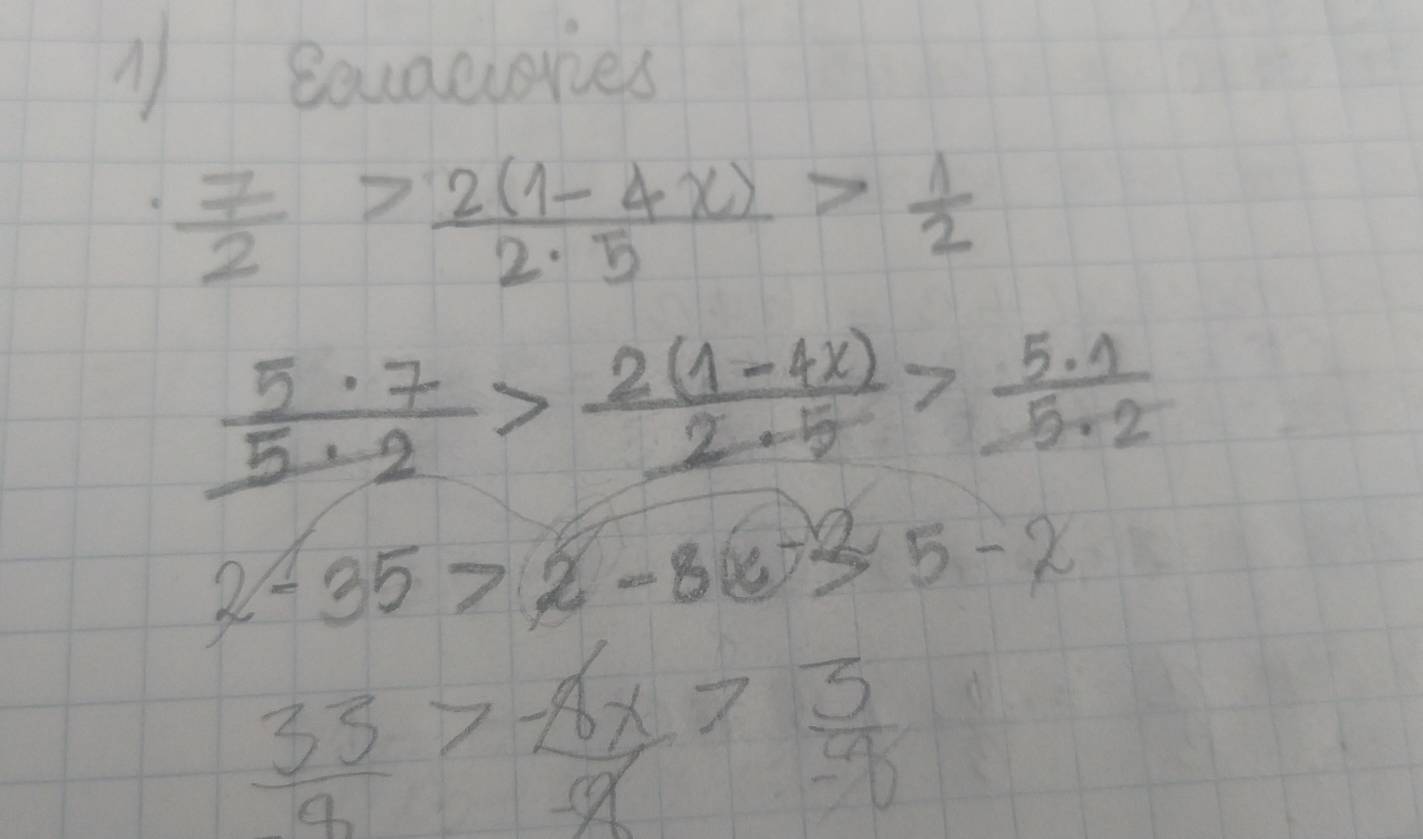 1) Ecuaciones
7/2 > 2(1-4x)/2·5 > 1/2
5·7/5·2 > 2(1-4x)/2·5 > 5·1/5·2
2-35 > 2-8x-2 > 5-2
33/-8 > -8x/-8 > 3/-8